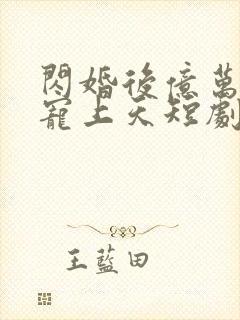 閃婚後億萬
寵上天短劇
王藍田